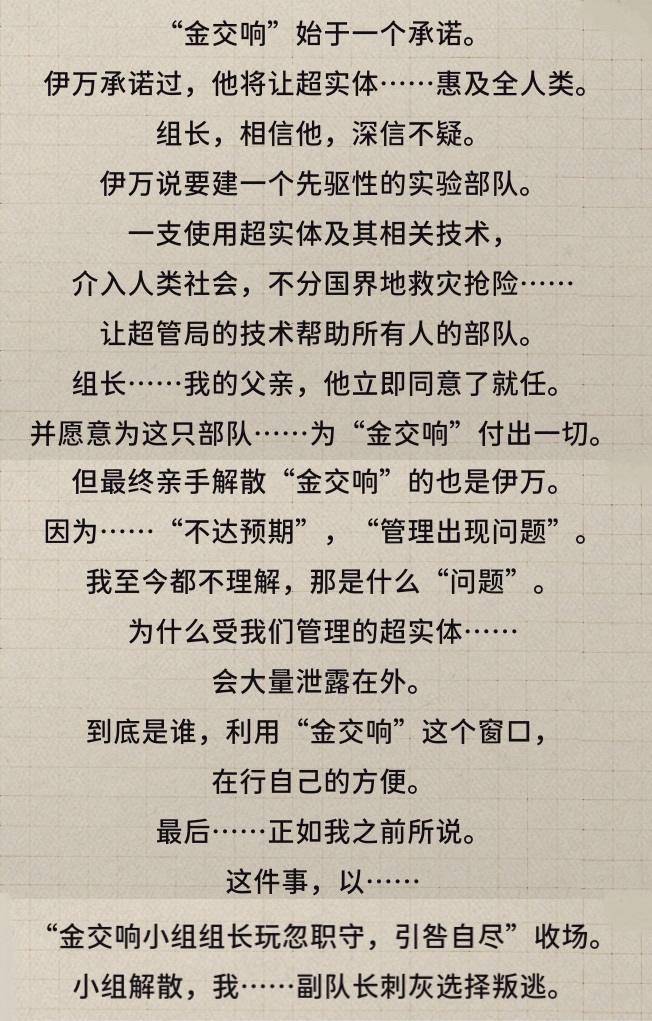 “金交响”始于一个承诺。
伊万承诺过，他将让超实体……惠及全人类。
组长，相信他，深信不疑。
伊万说要建一个先驱性的实验部队。
一支使用超实体及其相关技术，
介入人类社会，不分国界地救灾抢险……
让超管局的技术帮助所有人的部队。
组长……我的父亲，他立即同意了就任。
并愿意为这只部队……为“金交响”付出一切。
但最终亲手解散“金交响”的也是伊万。
因为……“不达预期”，“管理出现问题”。
我至今都不理解，那是什么“问题”。
为什么受我们管理的超实体……
会大量泄露在外。
到底是谁，利用“金交响”这个窗口，
在行自己的方便。
最后……正如我之前所说。
这件事，以……
“金交响小组组长玩忽职守，引咎自尽”收场。
小组解散，我……副队长刺灰选择叛逃。